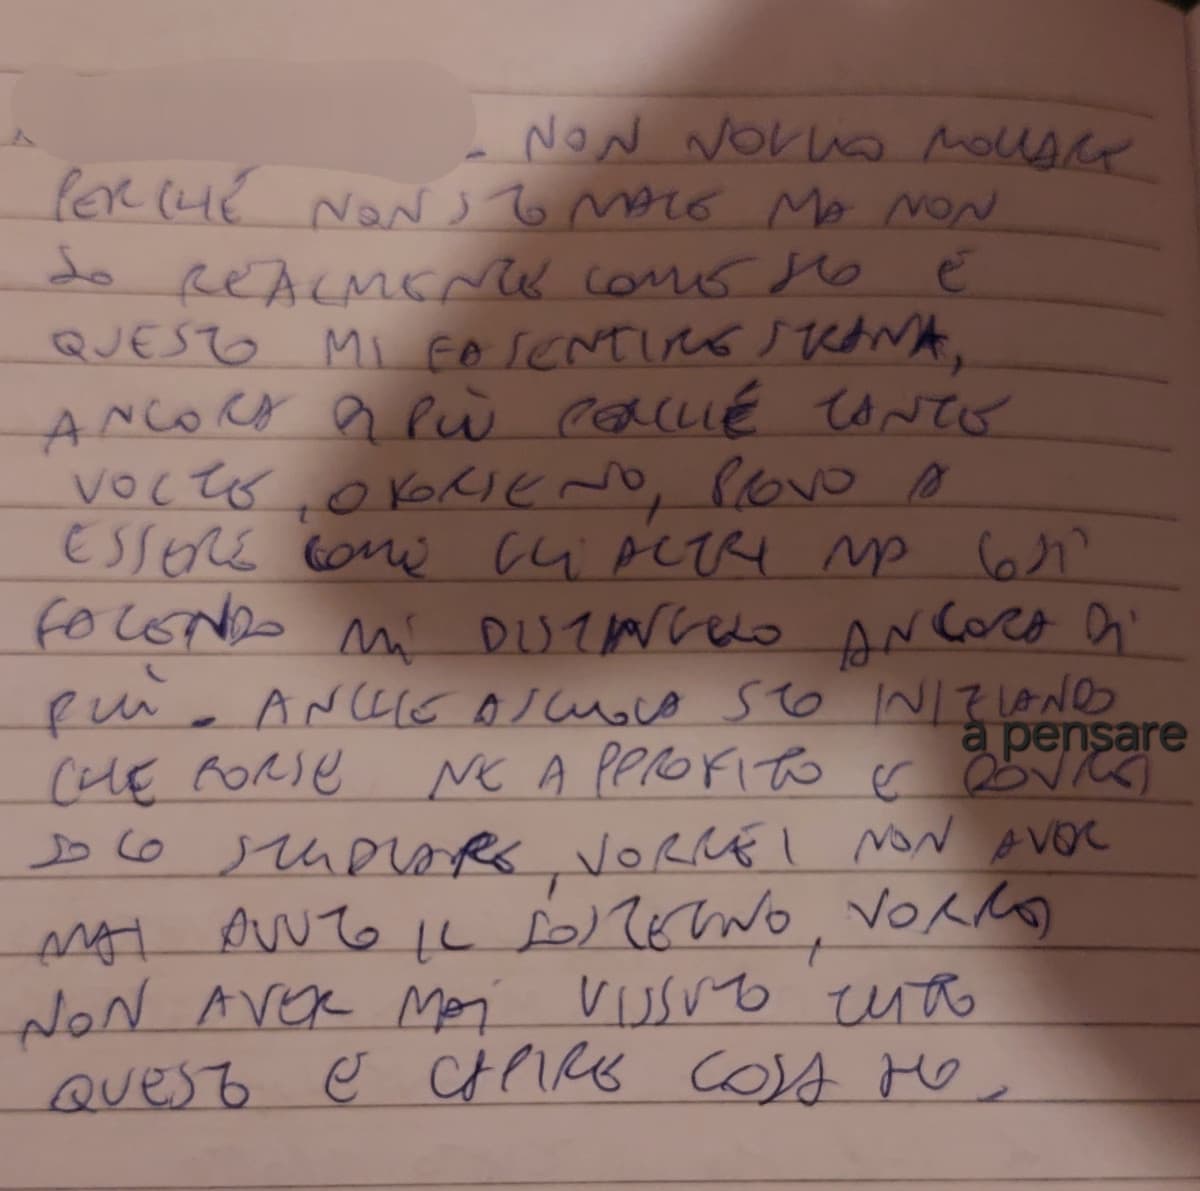 . NON VOGLIO MOLLARE
PERCHÉ NON STO MALE MA NON
SO REALMENTE COME STO E
QUESTO MI FA SENTIRE STRANA,
ANCORA DI PIÙ PERCHÉ TANTE
VOLTE, O ALMENO, PROVO A
ESSERE COME GLI ALTRI MA COSÌ
FACENDO MI DISTANGUO ANCORA DI
PIÙ. ANCHE A SCUOLA STO INIZIANDO
a pensare
CHE FORSE NE APPROFITTO E DOVREI
SOLO STUDIARE, VORREI NON AVER
MAI AVUTO IL SOSTEGNO, VORREI
NON AVER MAI VISSUTO TUTTO
QUESTO E CAPIRE COSA HO.